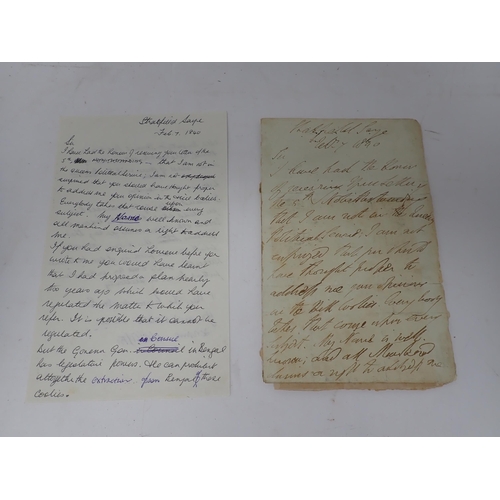 Stratfield Saye
Feb 7. 1840
Sir
I have had the Honor of receiving your letter of the
5th
that I am not in the
I am
surprised that you should have thought proper
to address me your opinion in the
Everybody
subject. My Name well known and
all mankind a right to address
me.
If you had enquired before you
wrote to me you would have learnt
that I had proposed a plan nearly
two years ago which would have
regulated the matter to which you
refer. It is possible that it cannot be
regulated.
in Council
But the Governor Gen in Bengal
has legislative powers. He can prohibit
altogether the extraction from Bengal of these
coolies.
Stratfield Saye
Feb 7 1840
Sir
I have had the Honor
to receive your letter
of the 5
that I am not in the
I am not
surprised that you should
have thought proper to
address me your opinions
on the Every body
upon every
subject. My Name is well
known; and all Mankind
a right to address me